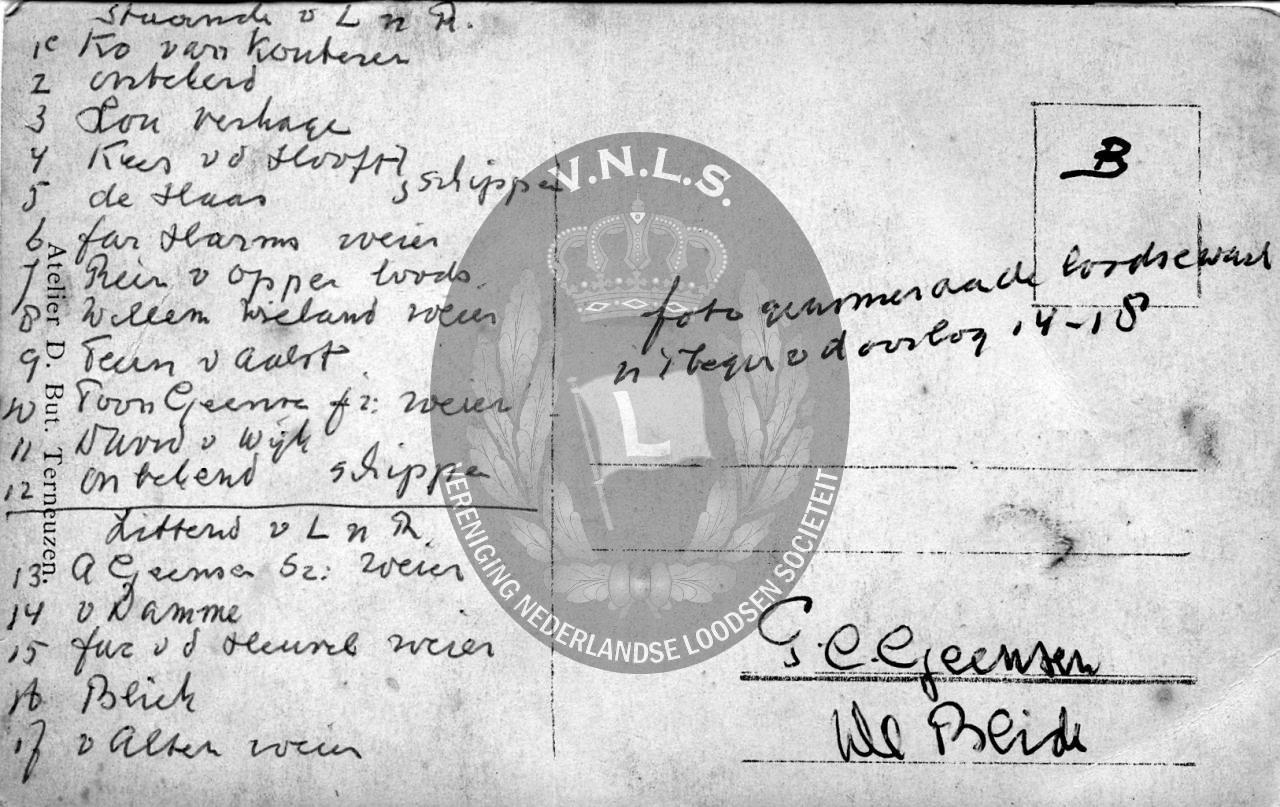 Staande v L n R.
1e Ko van Kouteren
2 onbekend
3 Lou Verhage
4 Kees v d Hooft
5 de Haas } schipper
6 Jac Harms roeier
7 Rein v Opper loods.
8 Willem Wieland roeier
9 Teun v Aalst
10 Toon Geense jr: roeier
11 David v Wijk
12 onbekend schipper
Zittend v L n R.
13 A Geensen Sr: roeier
14 v Damme
15 Jac v d Heuvel roeier
16 Bliek
17 v Alten roeier
Atelier D. But. Terneuzen.
V.N.L.S.
L
VERENIGING NEDERLANDSE LOODSEN SOCIETEIT
B
foto
v d oorlog 14-18
G.C. Geensen